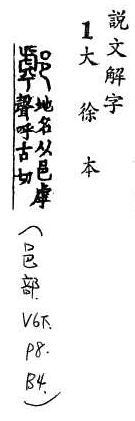 說文解字
1大徐本
地名从邑虖
聲呼古切
(邑部 V6下. P8. B4.)